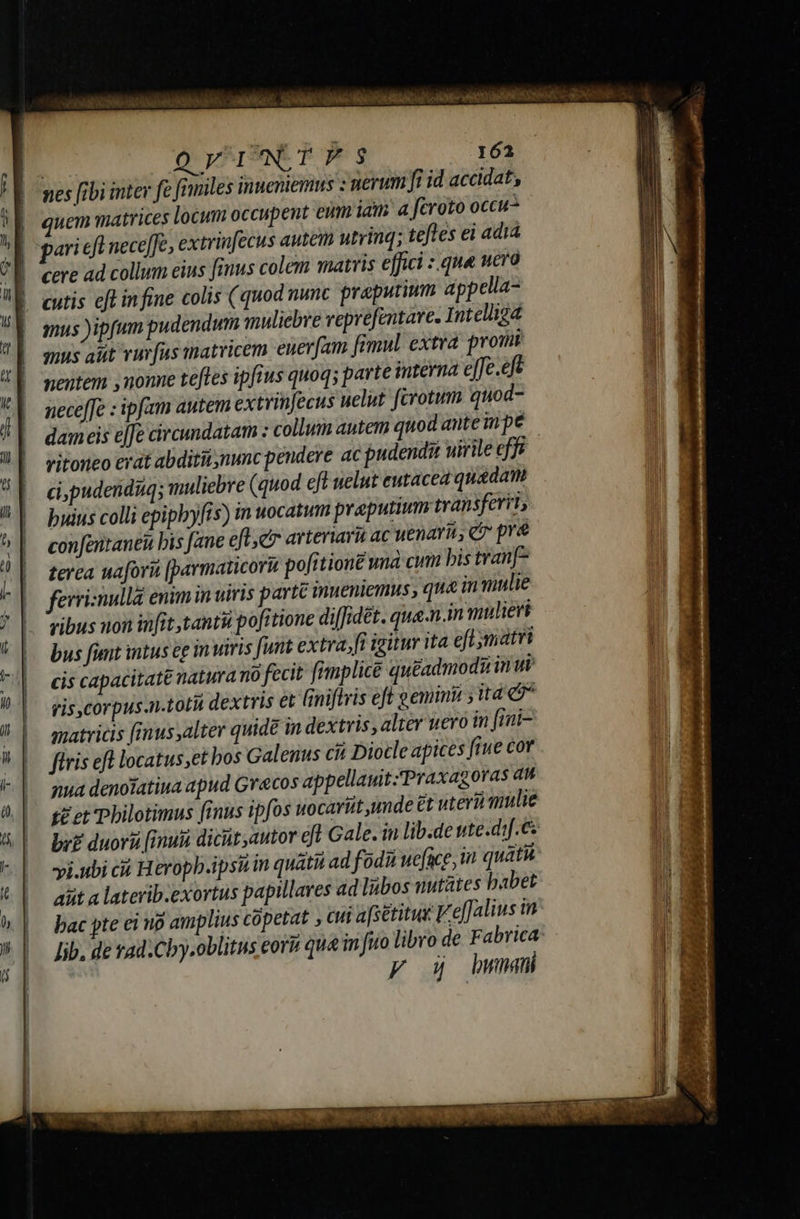 QVINTVS 162
nes ſibi inter ſe ſimiles inueniemus : uerum ſi id accidat,
quem matrices locum occupent eum iam a ſcroto occu-
pari eſt neceſſe, extrinſecus autem utrinq; teſtes ei adiā
cere ad collum eius ſinus colem matris effici : quæ uerò
cutis eſt in fine colis (quod nunc præputium appella-
mus) ipſum pudendum muliebre repreſentare. Intelligā
mus aūt rurſus matricem euerſam ſimul extra promi
nentem , nonne teſtes ipſius quoq; parte interna eſſe. eſt
neceſſe : ipſam autem extrinſecus uelut ſcrotum quod-
dam eis eſſe circundatam : collum autem quod ante in pe
ritoneo erat abditū, nunc pendere ac pudendū uirile effi
ci, pudendūq; muliebre (quod eſt uelut cutacea quædam
huius colli epiphyſis) in uocatum præputium transferri,
conſentaneū his ſane eſt, & arteriarū ac uenarū, & præ
terea uaſorū ſparmaticorū poſitionē unà cum his tranſ-
ferri: nullā enim in uiris partē inueniemus, quæ in mulie
ribus non inſit, tantū poſitione diſſidēt. quæ.n. in mulieri
bus ſunt intus ee in uiris ſunt extra, ſi igitur ita eſt, matri
cis capacitatē natura nō fecit ſimplicē quēadmodū in ui
ris, corpus.n. totū dextris et ſiniſtris eſt geminū , ita &
matricis ſinus, alter quidē in dextris, alter uero in ſini-
ſtris eſt locatus, et hos Galenus cū Diocle apices ſiue cor
nua denoīatiua apud Græcos appellauit: Praxagoras au
tē et Philotimus ſinus ipſos uocarūt, unde ēt uterū mulie
brē duorū ſinuū dicūt, autor eſt Gale. in lib. de ute. diſ. c.
vi. ubi cū Heroph. ipsū in quātū ad fodū ueſicæ, in quātū
aūt a laterib. exortus papillares ad lūbos nutātes habet
hac pte ei nō amplius cōpetat , cui aſsētitur Veſſalius in
lib. de rad. Chy. oblitus eorū quæ in ſuo libro de Fabrica
V ij humani